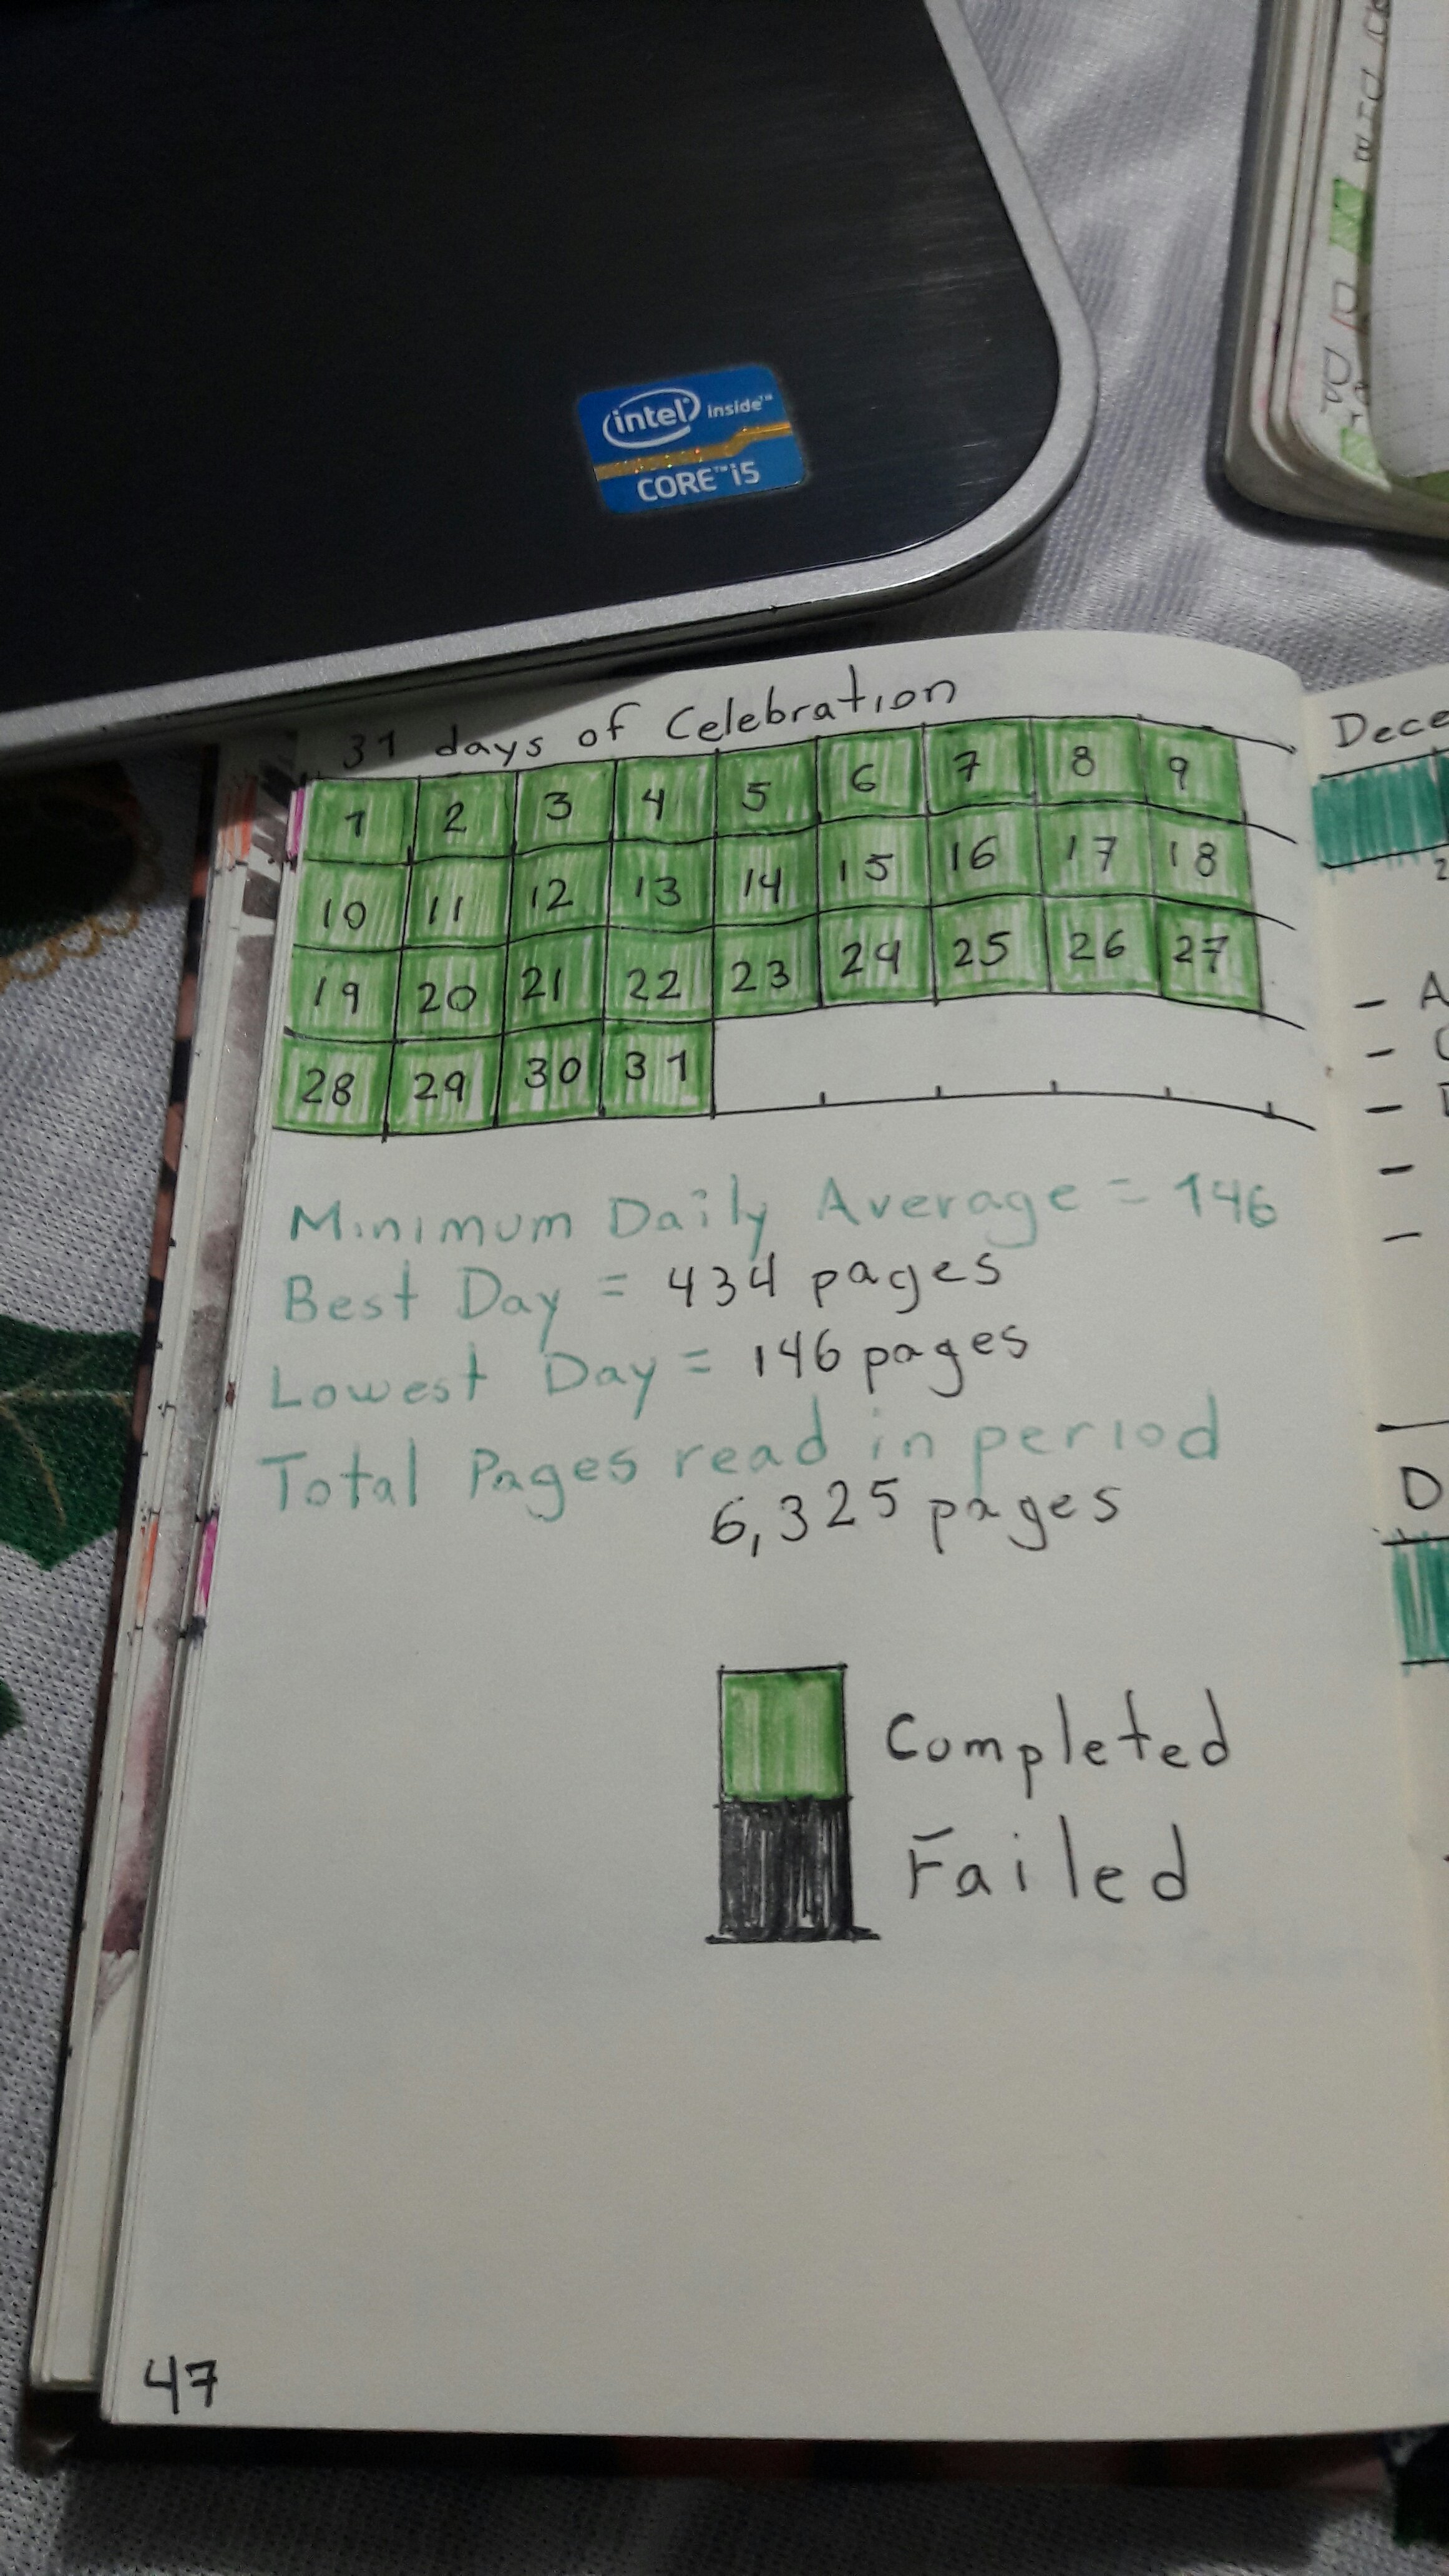 intel inside™
CORE™ i5
31 days of Celebration
1 2 3 4 5 6 7 8 9
10 11 12 13 14 15 16 17 18
19 20 21 22 23 24 25 26 27
28 29 30 31
Minimum Daily Average = 146
Best Day = 434 pages
Lowest Day = 146 pages
Total Pages read in period
6,325 pages
Completed
Failed
47
Dece
2
- A
-
-
-
-
D